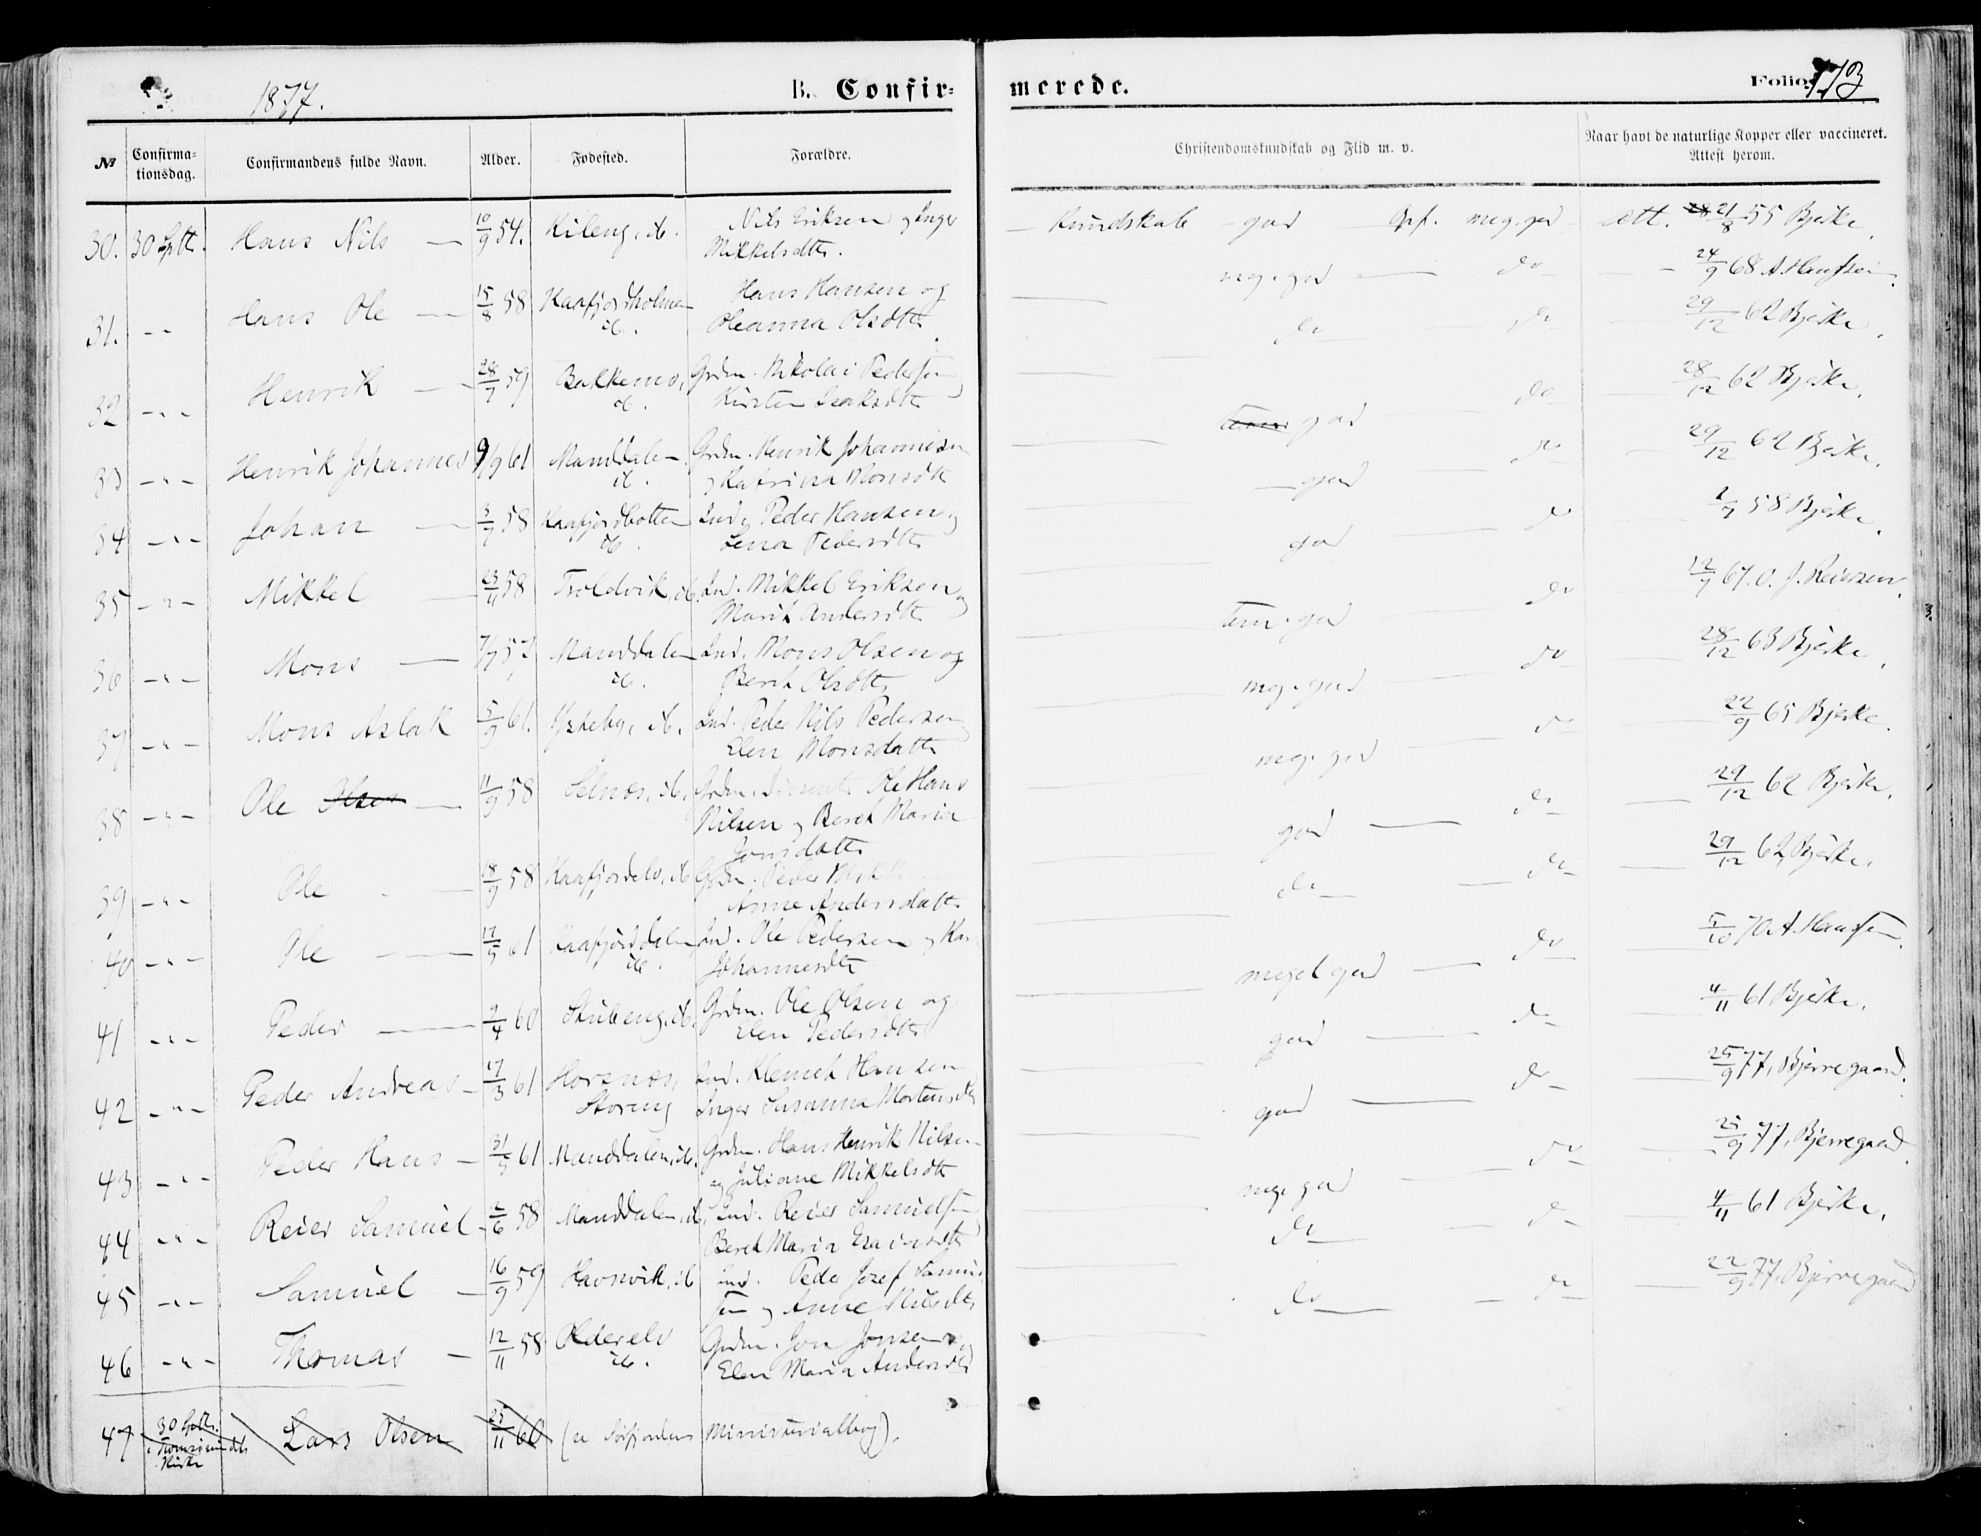 1877.
B. Confir-
merede.
Folio 173
№
Confirma-
tionsdag.
Confirmandens fulde Navn.
Alder.
Fødested.
Forældre.
Christendomskundskab og Flid m. v.
Naar havt de naturlige Kopper eller vaccineret.
Attest herom.
30. 30 Sptb. Hans Nils — 10/9 54. Kileng, ib. Nils Eriksen og Inger
Mikkelsdtr.
— Kundskab — god Opf. meg. god — Att. 21/8 55 Bjerke.
31. - " - Hans Ole — 15/8 58 Kaafjordholmen ib. Hans Hansen og
Oleanna Olsdtr.
meg. god — do — 24/9 68 A. Hansen.
32 - " - Henrik — 28/7 59 Bakkemo, ib. Grdm. Nikolai Pedersen
Kirsten Isaksdtr
do — do — 29/12 62 Bjerke.
33 - " - Henrik Johannes 9/9 61 Manddalen ib. Grdm. Henrik Johannesen
og Katrina Monsdtr
god — do — 28/12 62 Bjerke.
34 - " - Johan — 3/7 58 Kaafjordbotten ib. Ind. Peder Hansen og
Lena Pedersdtr
— god — do — 29/12 62 Bjerke.
35 - " - Mikkel — 23/11 58 Troldvik, ib. Ind. Mikkel Eriksen og
Marit Andersdtr
god — do — 58 Bjerke.
36 - " - Mons — 7/7 57 Manddalen ib. Ind. Mons Olsen og
Berit Olsdtr
tem. god — do — 12/7 67. O. J. Reiersen.
37 - " - Mons Aslak 5/9 61. Ysteby, ib. Ind. Peder Nils Pedersen
Elen Monsdatter
meg. god — do — 28/12 63 Bjerke.
38 - " - Ole Olsen — 11/9 58 Selnæs, ib. Grdm. Ole Hans
Nilsen og Berit Maria
Jonsdatter
meg. god — do — 22/9 65 Bjerke.
39 - " - Ole — 18/9 58 Kaafjordelv, ib. Grdm. Peder Mikkelsen
Anne Andersdatter
god — do — 29/12 62 Bjerke.
40 - " - Ole — 17/5 61 Kaafjorddalen ib. Ind. Ole Pedersen og
Johannesdtr
do — do — 29/12 62, Bjerke.
41 - " - Peder — 9/4 60 Skibeng, ib. Grdm. Ole Olsen og
Elen Pedersdtr
meget god — do — 5/10 70 A. Hansen.
42 - " - Peder Andreas — 17/3 61 Horsnæs, Storeng Ind. Klemet Hansen
Inger Susanna Mortensdtr
god — do — 4/11 61 Bjerke.
43 - " - Peder Hans — 31/5 61 Manddalen, ib. Grdm. Hans Henrik Nilsen
og Juliane Mikkelsdtr
god — do — 25/9 77, Bjerregaard.
44 - " - Reier Samuel — 2/6 58 Manddalen, ib. Ind. Reier Samuelsen
Berit Maria Esaiasdtr
meg. god — do — 25/9 77, Bjerregaard.
45 - " - Samuel — 16/9 59 Havnvik, ib Ind. Peder Josef
sen og Anne Nilsdtr
do — do — 4/11 61 Bjerke.
46 - " - Thomas — 12/11 58 Olderelv ib. Grdm. Jon Jonsen og
Elen Maria Andersdtr
do — do — 22/9 77, Bjerregaard
47 30 Sptb. i Tromsøsundets Kirke Lars Olsen 25/11 60 (se Sørfjordens Ministerialbog).